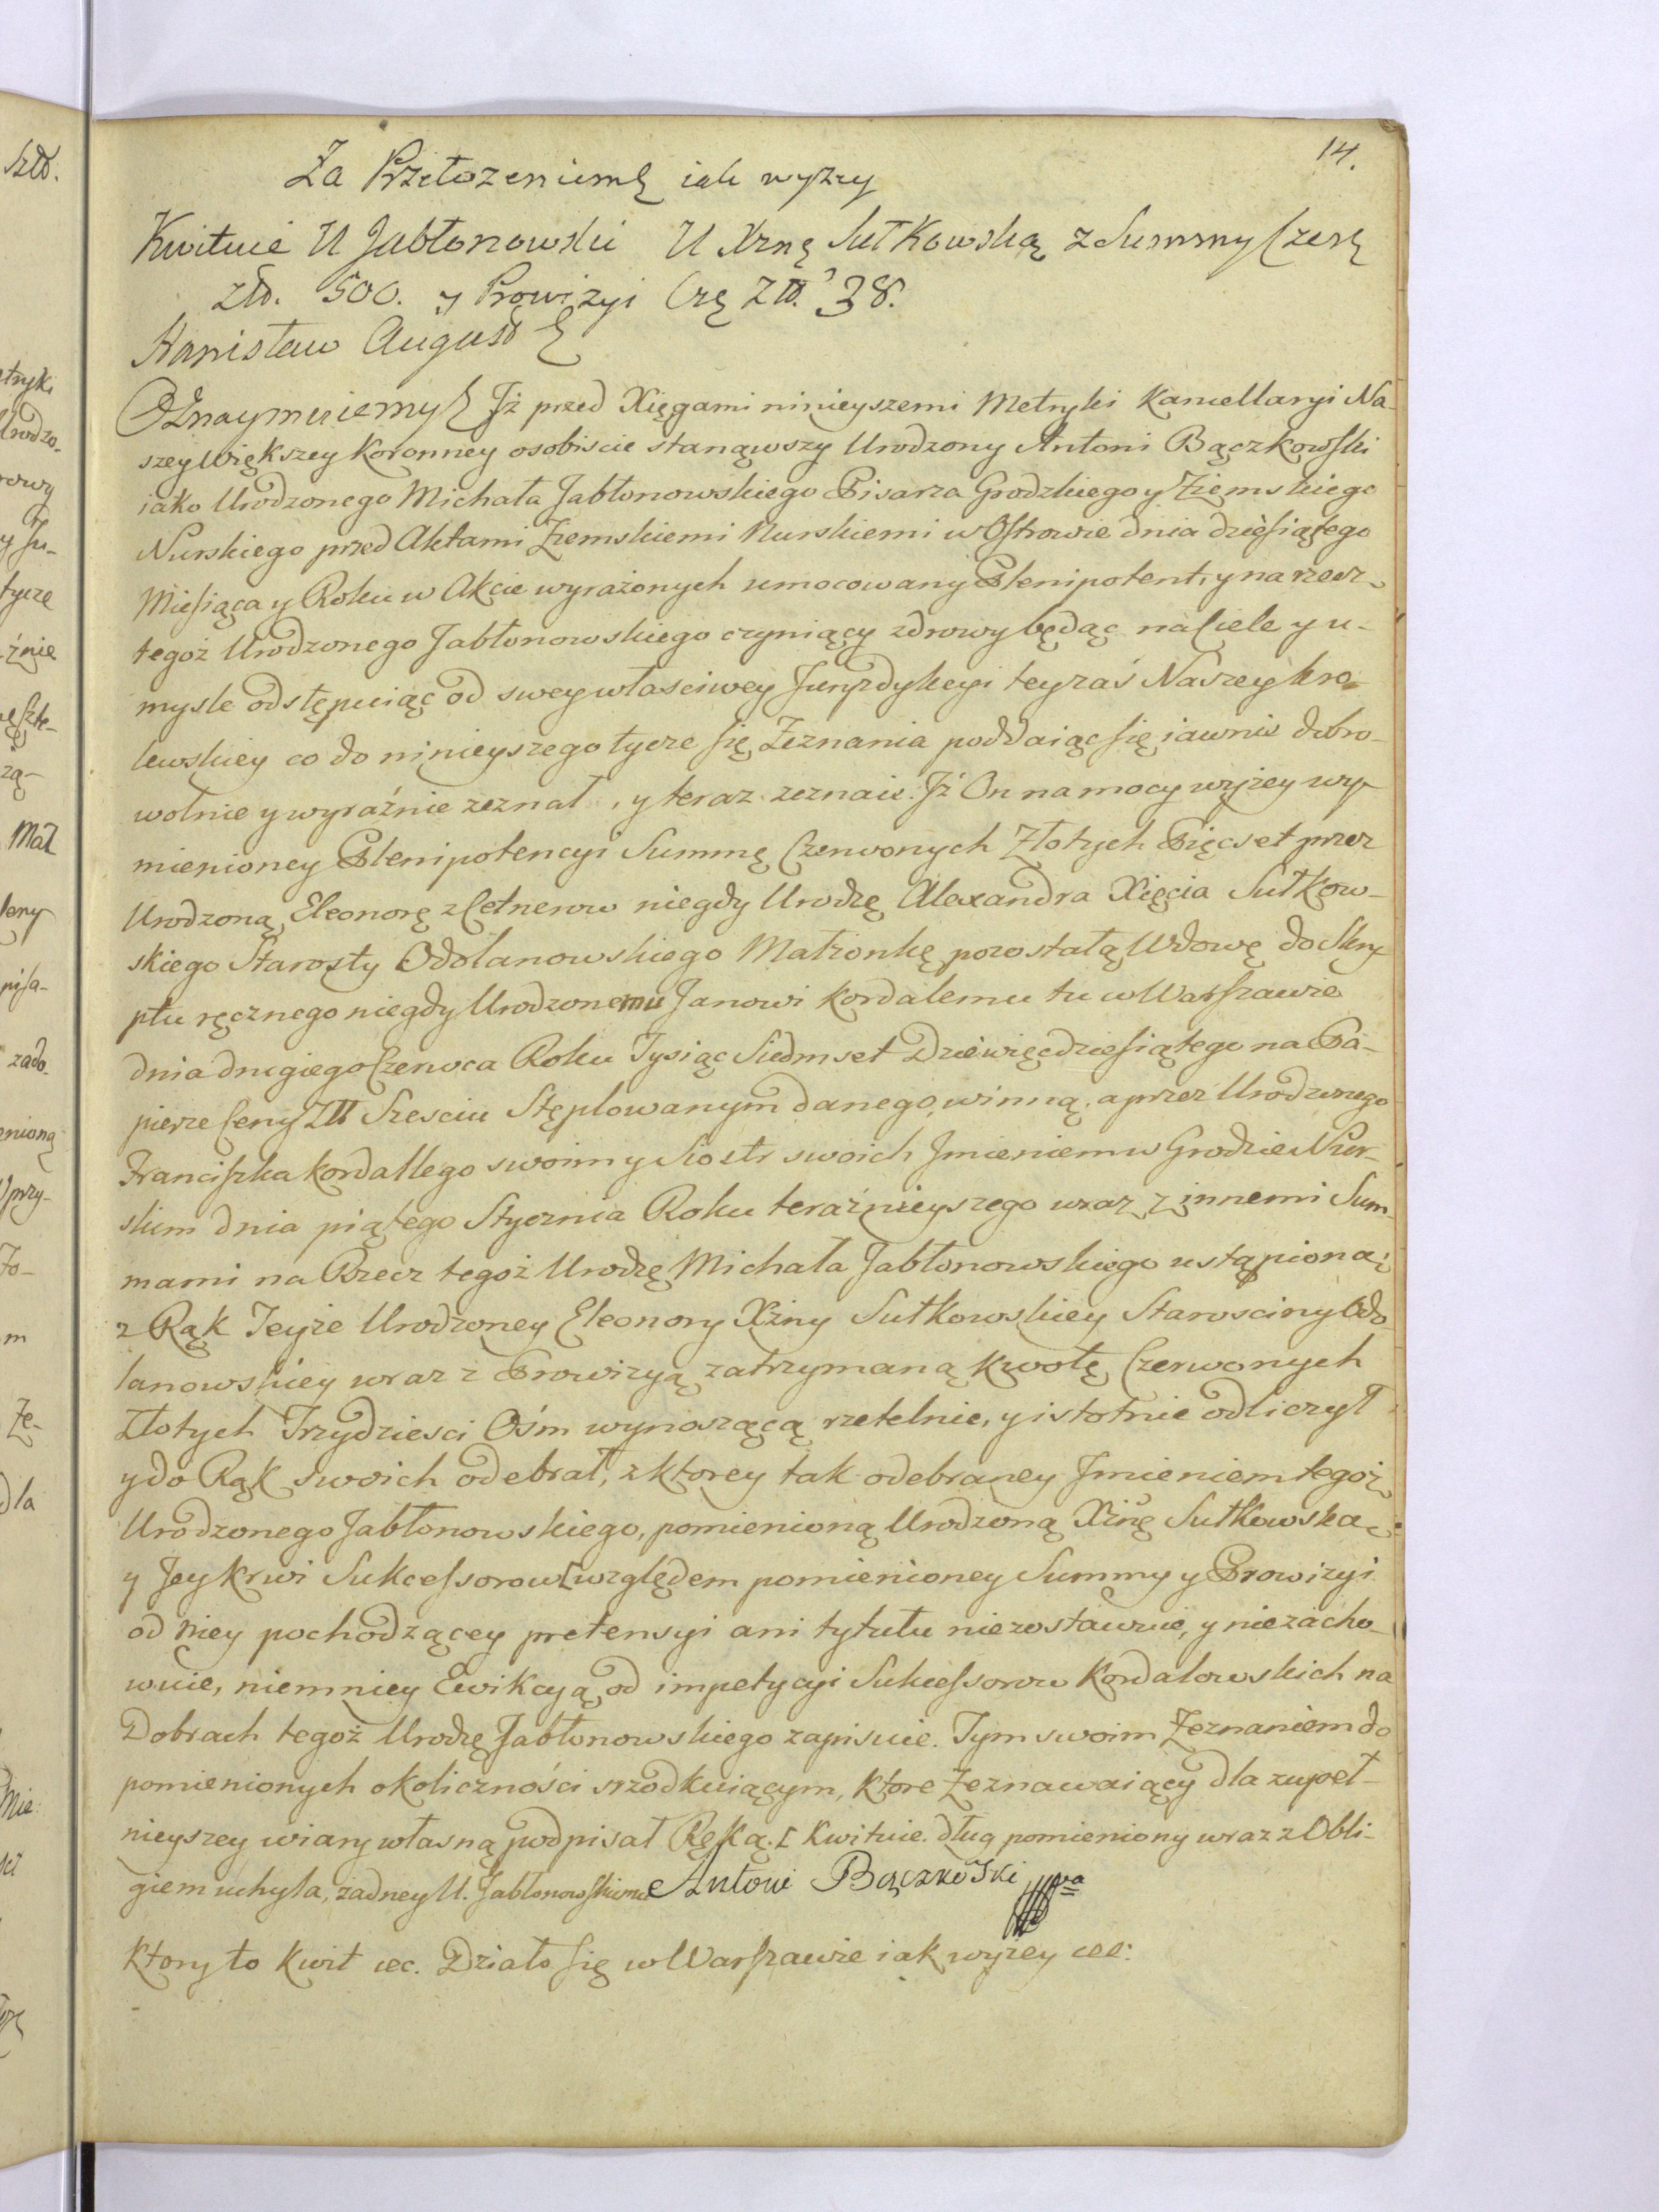 14.
Za Przełozeniem iak wyzey
Kwituie U Jabłonowski U Xznę Sułkowską z Summy Czerę
Złł. 500. y Prowizyi Czę Złł. 38.
Stanisław August
Oznaymuiemy Jż przed Xięgami ninieyszemi Metryki Kancellaryi Na-
szey większey Koronney osobiscie stanąwszy Urodzony Antoni Bączkowski
iako Urodzonego Michała Jabłonowskiego Pisarza Grodzkiego y Ziemskiego
Nurskiego przed Aktami Ziemskiemi Nurskiemi w Ostrowie dnia dziesiątego
Miesiąca y Roku w Akcie wyrażonych umocowany Plenipotent, y na rzecz
tegoż Urodzonego Jabłonowskiego czyniący zdrowy będąc na Ciele y u-
mysle odstępuiąc od swey własciwey Juryzdykcyi tey zaś Naszey kro-
lewskiey co do ninieyszego tycze się Zeznania poddaiąc się iawnie dobro-
wolnie y wyraźnie zeznał, y teraz zeznaie: Jż On na mocy wyżey wy-
mienioney Plenipotencyi Summę Czerwonych Złotych Pięcset przez
Urodzoną Eleonorę z Cetnerow niegdy Urodzę Alexandra Xięcia Sułkow-
skiego Starosty Odolanowskiego Małżonkę pozostałą Wdowę do Skry-
ptu ręcznego niegdy Urodzonemu Janowi Kordalemu tu w Warszawie
dnia drugiego Czerwca Roku Tysiąc Siedmset Dziewięcdziesiątego na Pa-
pierze Ceny Złł Szesciu Stęplowanym danego, winną, a przez Urodzonego
Franciszka Kordallego swoim y Siostr swoich Jmieniem w Grodzie Nur-
skim dnia piątego Stycznia Roku teraźnieyszego wraz z innemi Sum-
mami na Rzecz tegoż Urodzę Michała Jabłonowskiego ustąpioną;
z Rąk Teyże Urodzoney Eleonory Xżny Sułkowskiey Starosciny Odo-
lanowskiey wraz z Prowizyą zatrzymaną kwotę Czerwonych
Złotych Trzydziesci Ośm wynoszącą rzetelnie, y istotnie odliczył
y do Rąk swoich odebrał, z ktorey tak odebraney Jmieniem tegoż
Urodzonego Jabłonowskiego, pomienioną Urodzoną Xżnę Sułkowską
y Jey krwi Sukcessorow [ względem pomienioney Summy y Prowizyi
od niey pochodzącey pretensyi ani tytułu niezostawuie, y niezacho-
wuie, niemniey Ewikcyą od impetycyi Sukcessorow Kordalowskich na
Dobrach tegoż Urodzę Jabłonowskiego zapisuie. Tym swoim Zeznaniem do
pomienionych okoliczności srzodkuiącym, ktore Zeznawaiący dla zupeł-
nieyszey wiary własną podpisał Ręką. [ Kwituie. dług pomieniony wraz z Obli-
giem uchyla, żadney U. Jabłonowskiemu Antoni Bączkowski mpa
ktory to kwit etc. Działo się w Warszawie iak wyzey etc: